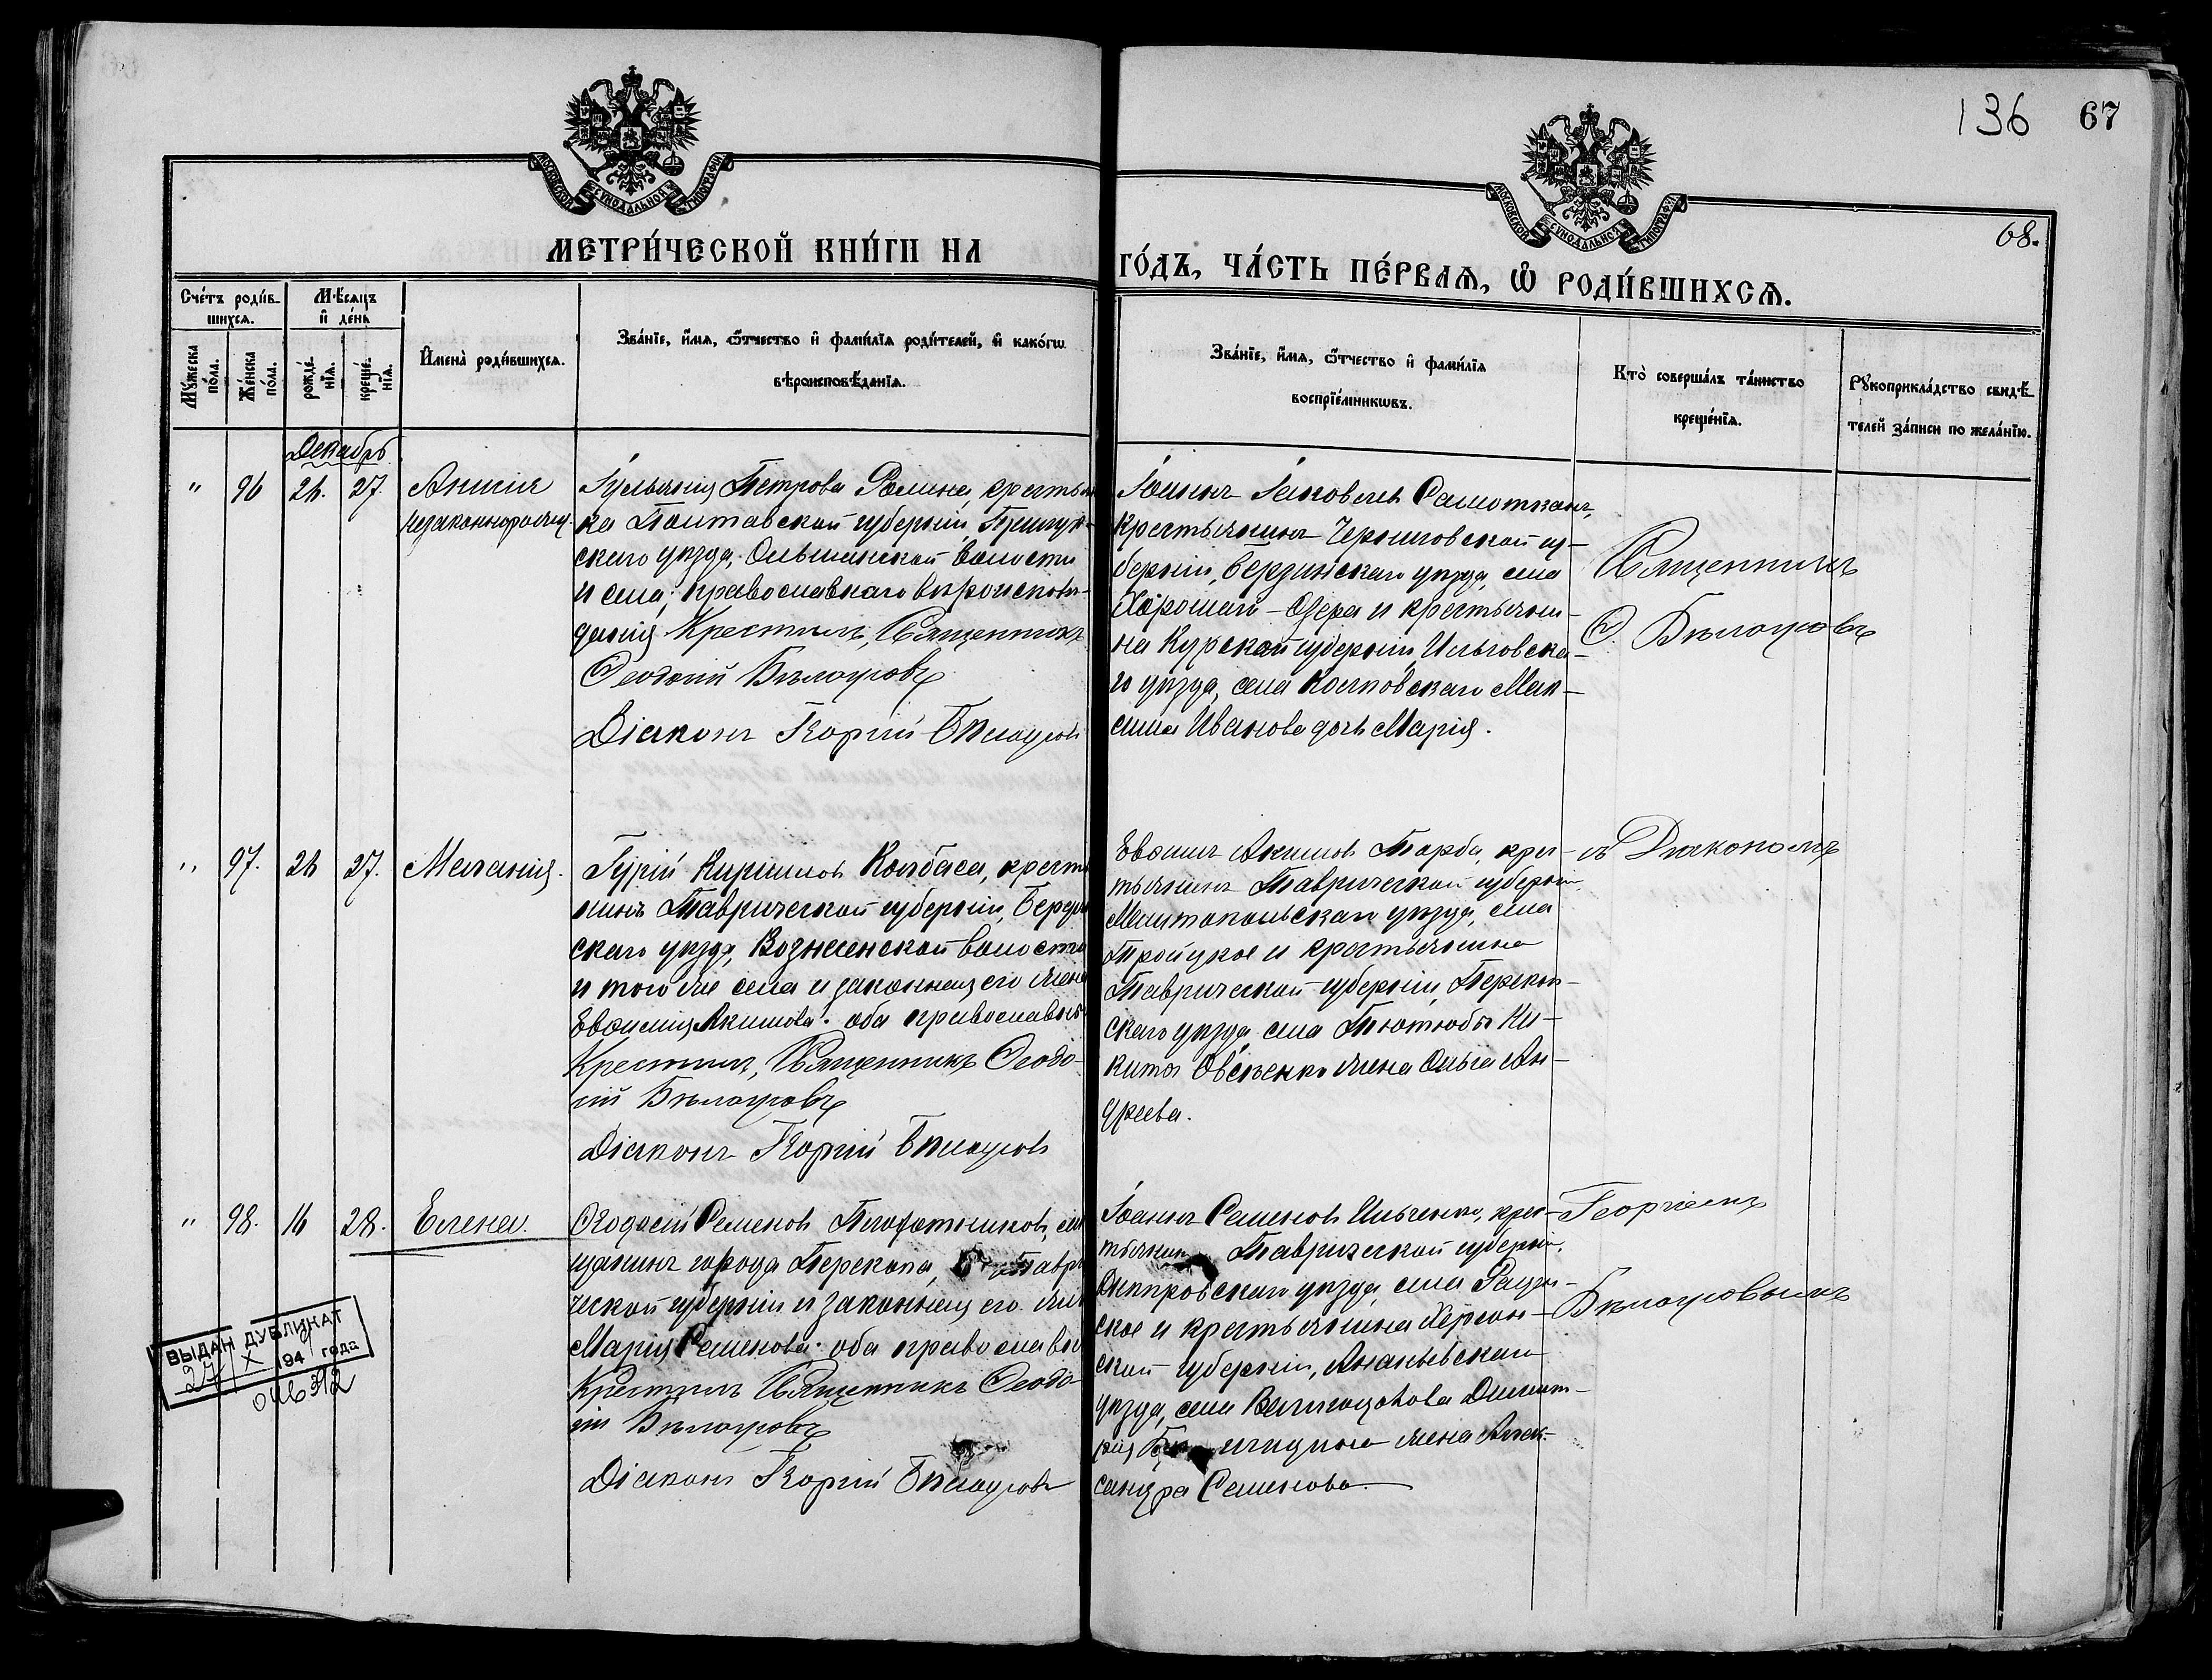 136 67
68.
МОСКОВСКОЙ СѴНОДАЛЬНОЙ ТИПОГРАФІИ
МОСКОВСКОЙ СѴНОДАЛЬНОЙ ТИПОГРАФІИ
МЕТРИ́ЧЕСКОЙ КНИ́ГИ НА
ГО́ДЪ, ЧА́СТЬ ПЕ́РВАѦ, Ѡ҆ РОДИ́ВШИХСѦ.
Сче́тъ роди́в-
шихсѧ.
Мꙋ́жеска по́ла.
Же́нска по́ла.
Мѣ́сѧцъ
и҆ де́нь
рожде́-
нїѧ.
креще́-
нїѧ.
И҆мена̀ роди́вшихсѧ.
Зва́нїе, и҆́мѧ, ѻ҆́тчество и҆ фами́лїѧ роди́телей, и҆ како́гѡ
вѣроисповѣ́данїѧ.
Зва́нїе, и҆́мѧ, ѻ҆́тчество и҆ фами́лїѧ
воспрїе́мникѡвъ.
Кто̀ соверша́лъ та́инство
креще́нїѧ.
Рꙋкоприкла́дство свидѣ́-
телей за́писи по жела́нїю.
Декабрь
" 96 27.
незаконнорожд.
Іуліанія Петрова Ролина, крестьян
ка Полтавской губерніи, Прилук-
скаго уѣзда, Ольшанской волости
и села; православнаго вѣроисповѣ-
данія Крестилъ, Священникъ
Ѳеодосій Бѣлоусовъ
Діаконъ Георгій Бѣлоусовъ
Іоаннъ Іаковлевъ
крестьянинъ Черниговской гу-
берніи, Борзинскаго уѣзда, села
Хорошаго-Озера и крестьяни-
на Курской губерніи, Льговска-
го уѣзда, села Мак-
сима Иванова дочь Марія.
Священникъ
Ѳ. Бѣлоусовъ
" 97. 27. Меланія.
Гурій Кирилловъ Колбаса, кресть
нинъ Таврической губерніи, Бердян
скаго уѣзда, Вознесенской волости
и того же села и законная его жена
Евѳимія Акимова: оба православны
Крестилъ, Священникъ Ѳеодо-
сій Бѣлоусовъ
Діаконъ Георгій Бѣлоусовъ
Евѳимъ Акимовъ Торба, крес-
тьянинъ Таврической губерніи
Мелитопольскаго уѣзда, села
Тройцкое и крестьянина
Таврической губерніи, Перекоп-
скаго уѣзда села Ни-
киты Овсѣенко жена Ольга Ан-
дреева.
съ Діакономъ
" 98. 16 28. Елена.
Ѳеодосій Семеновъ мѣ
щанинъ города Перекопа, Таври
ческой губерніи и законная его жена
Марія Семенова: оба православны
Крестилъ Священникъ Ѳеодо-
сій Бѣлоусовъ
Діаконъ Георгій Бѣлоусовъ
Іоаннъ Семеновъ Ильченко, крес-
тьянинъ Таврической губерніи,
Днѣпровскаго уѣзда, села
ское и крестьянина Херсон-
ской губерніи, Ананьевскаго
уѣзда, села Димит-
рія жена Алек-
сандра Семенова
Георгіемъ
Бѣлоусовымъ
ВЫДАН ДУБЛИКАТ
27/X 194 года